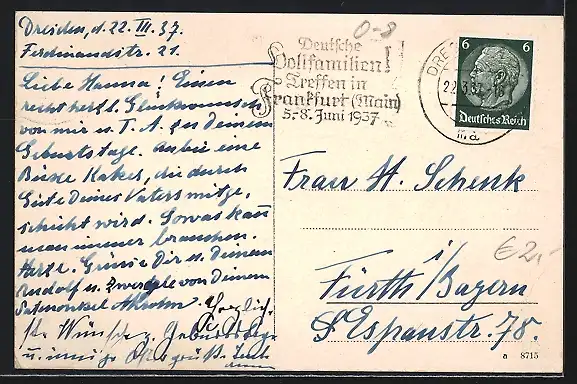 Dresden, d. 22. III. 37.
Ferdinandstr. 21.
Liebe Hanna! Einen
recht herzl. Glückwunsch
von mir u. T. A. zu Deinem
Geburtstage. Anbei eine
Büxe Kakes, die durch
Güte Deines Vaters mitge-
schickt wird. Sowas kann
man immer brauchen.
Herzl. Grüsse Dir u. Deinem
Rudolf u. Zwergle von Deinem
Herzlich-
ste Wünsche z. Geburtstage
u. innige
0-8
Deutsche
Vollfamilien!
Treffen in
Frankfurt (Main)
5.-8. Juni 1937
DRES
22.3.37
6 6
Deutsches Reich
Frau H. Schenk
i/
Fürth/Bayern
Espanstr. 78.
€ 2,-
a 8715